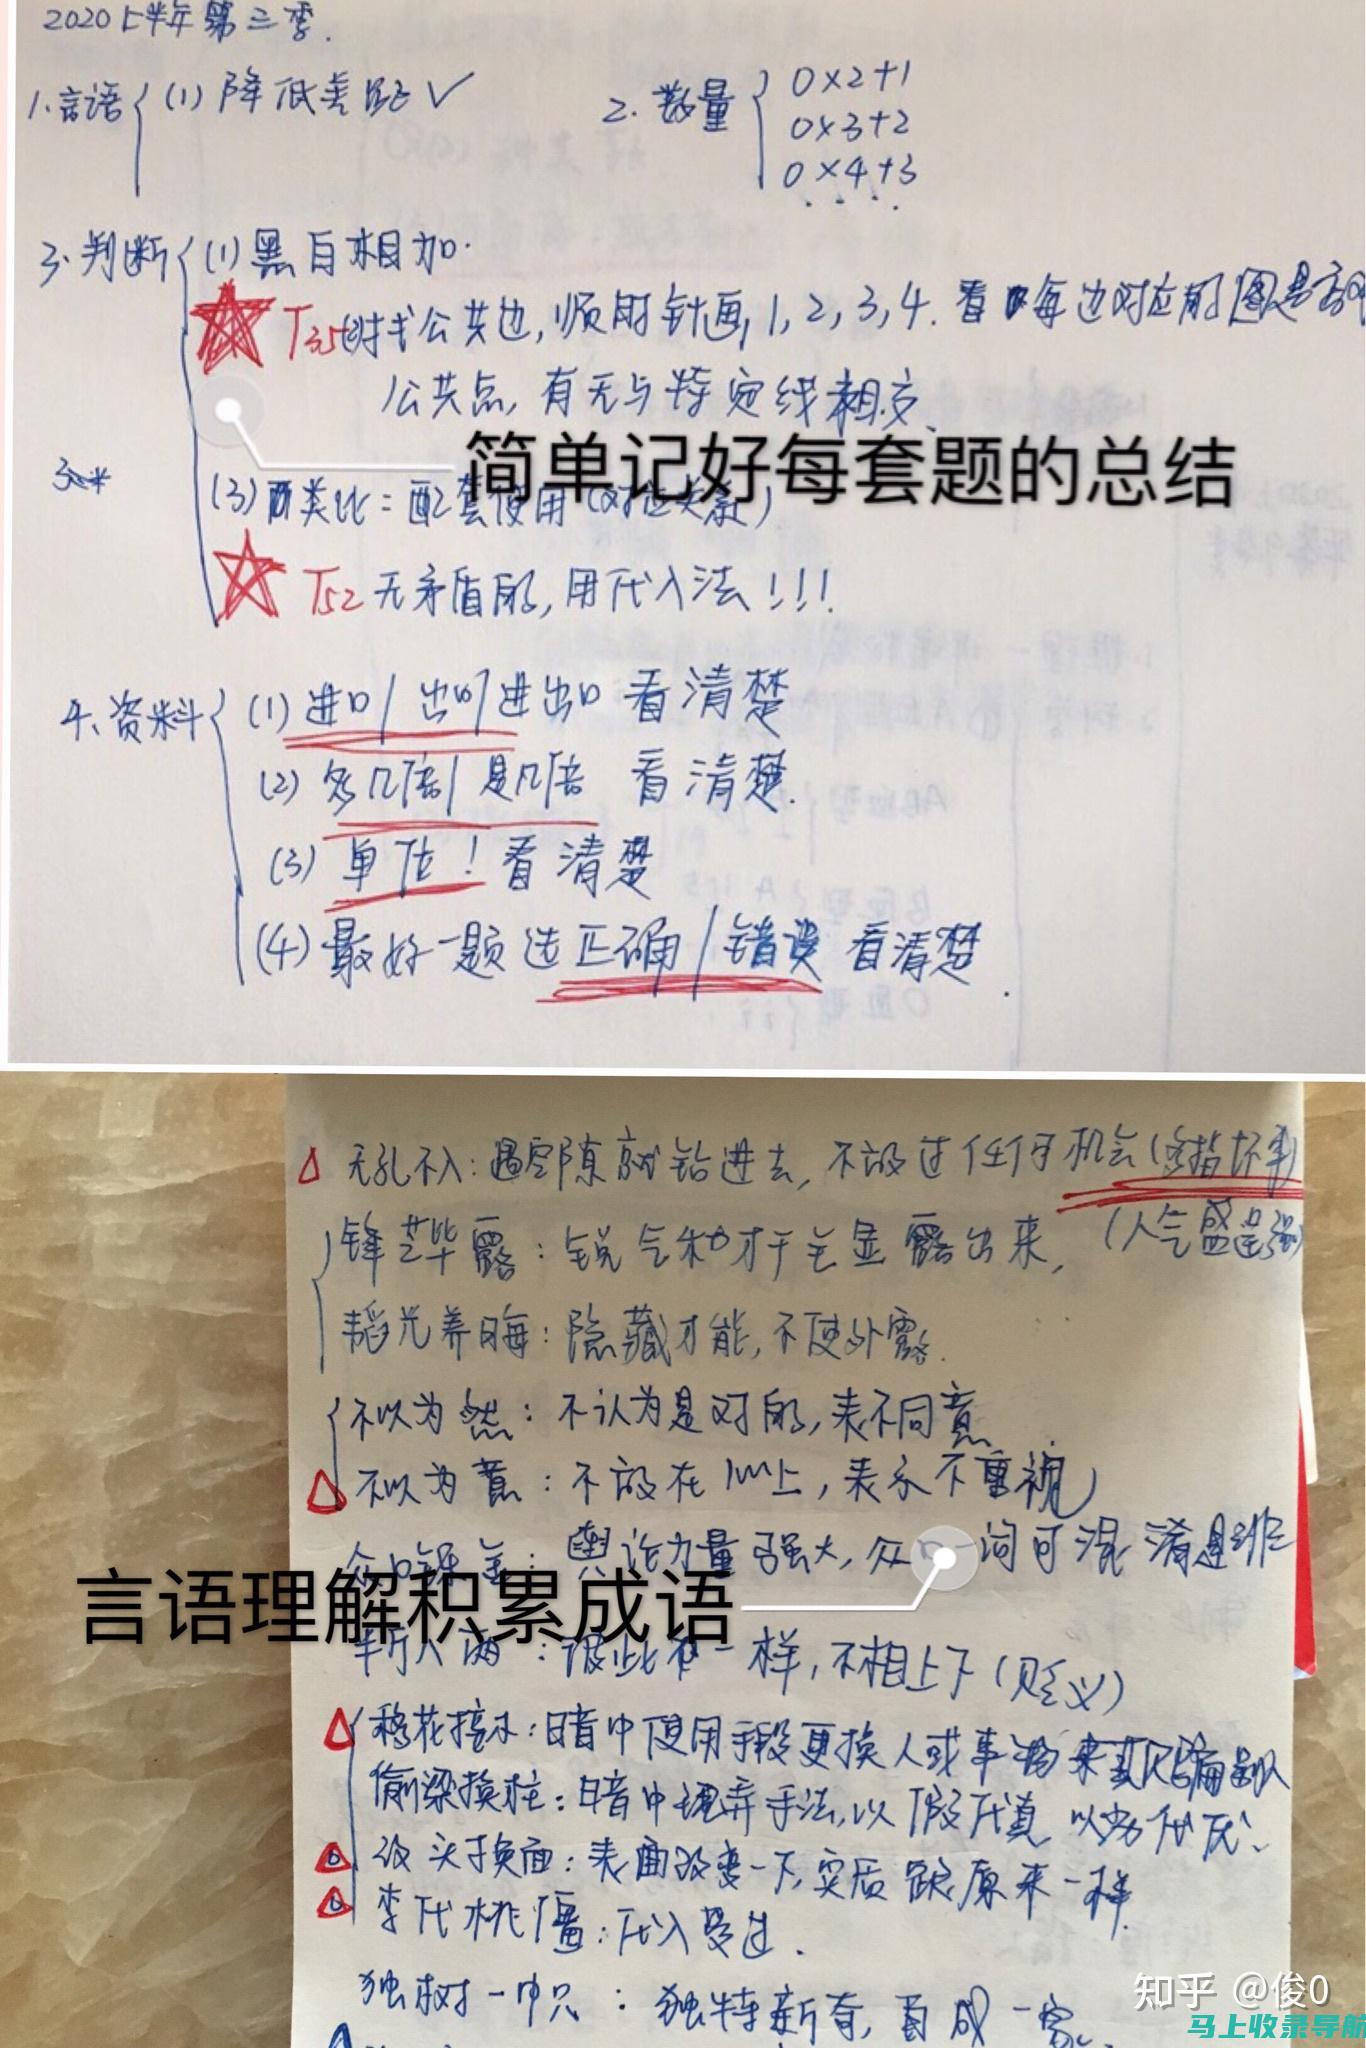 2020上半年第三季.
1.言语 (1)降低类 ✓
2.数量 0×2+1
0×3+2
0×4+3
....
3.判断 (1)黑白相加.
T35 找公共边,顺时针画,1,2,3,4.看每边对应的图是否
公共点,有无与特定线相交.
简单记好每套题的总结
(3)类比:配套使用(对应关系)
T52 无矛盾的,用代入法!!!
4.资料 (1)进口/出口/进出口 看清楚
(2)多几倍/是几倍 看清楚.
(3)单位!看清楚
(4)最好一题选正确/错误 看清楚.
无孔不入:遇空隙就钻进去,不放过任何机会(多指坏事)
锋芒毕露:锐气和才干全显露出来,(人气盛逞强)
韬光养晦:隐藏才能,不使外露.
不以为然:不认为是对的,表不同意
不以为意:不放在心上,表示不重视
众口铄金:舆论力量强大,众口一词可混淆是非
言语理解积累成语
半斤八两:彼此一样,不相上下(贬义)
移花接木:暗中使用手段更换人或事物来欺骗别人
偷梁换柱:暗中玩弄手法,以假代真 以劣代优.
改头换面:表面改变一下,实质跟原来一样.
李代桃僵:代人受过.
独树一帜:独特新奇,自成一家.
知乎 @俊0
马上收录导航